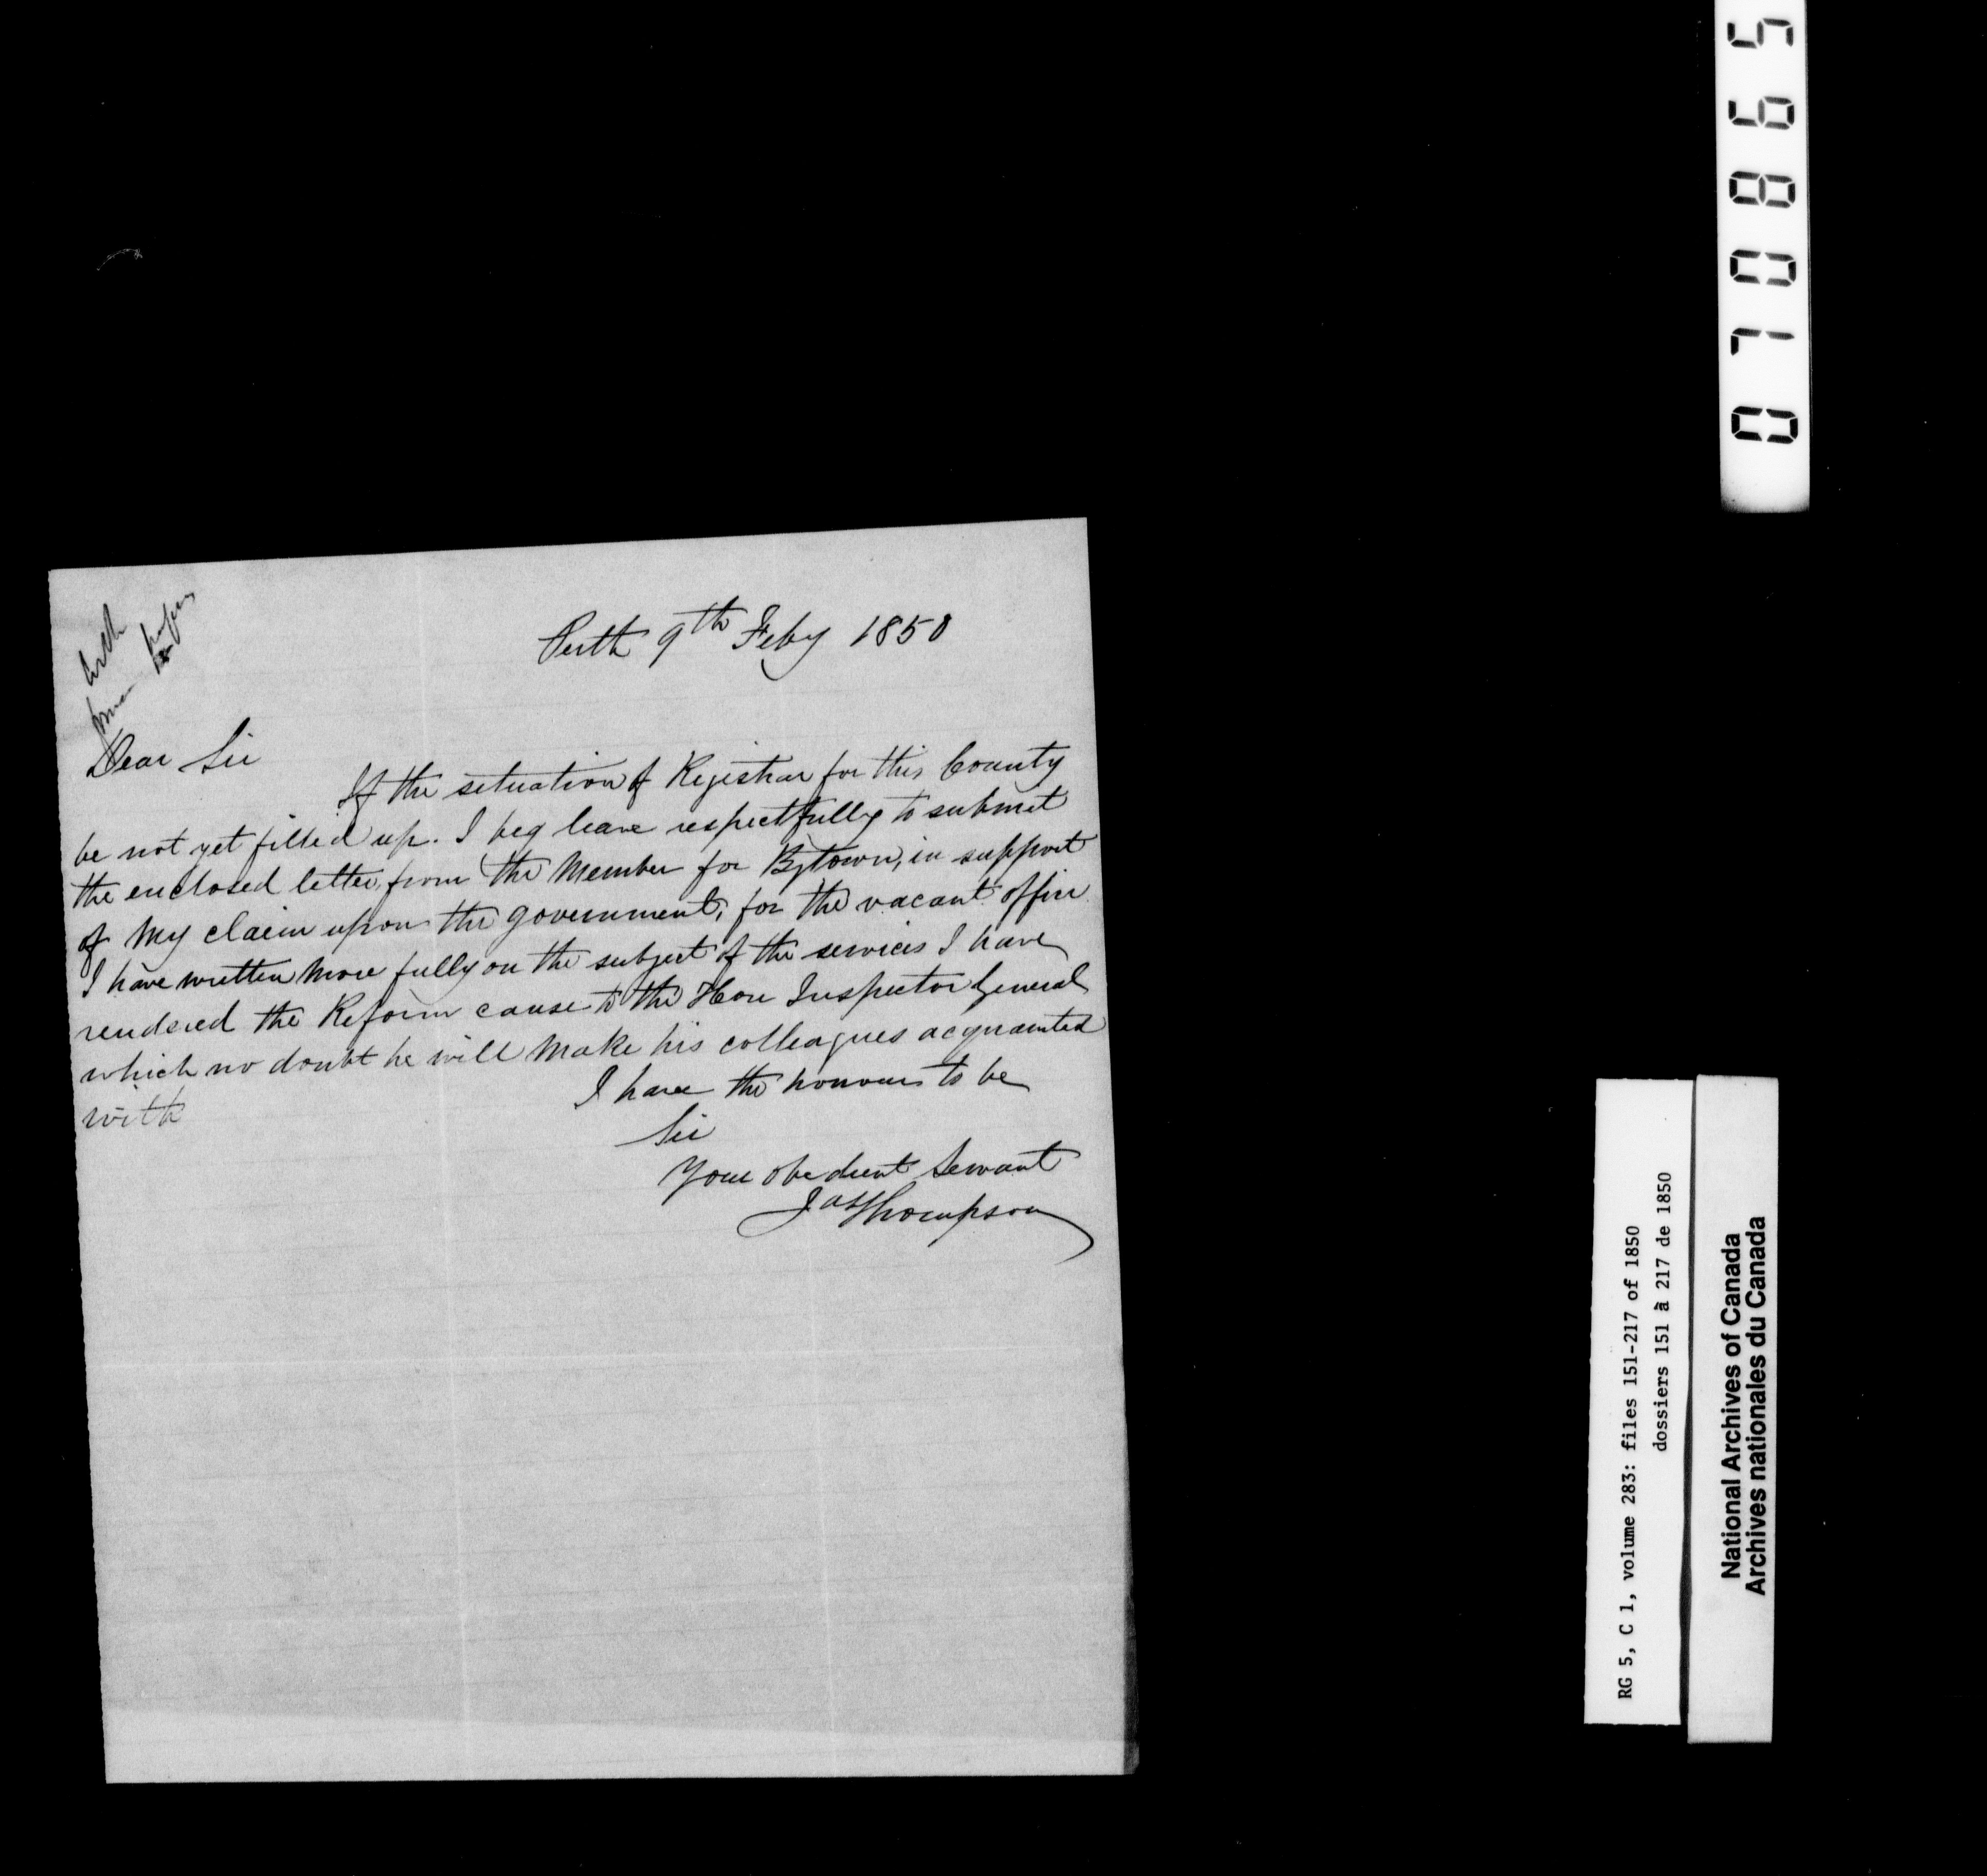 Perth 9th Feby 1850
with
papers
Dear Sir
If the situation of Registrar for this County
be not yet filled up. I beg leave respectfully to submit
the enclosed letter, from the Member for Bytown, in support
of My claim upon the government, for the vacant office
I have written More fully on the subject of the services I have
rendered the Reform cause to the Hon Inspector General
which no doubt he will Make his colleagues acquainted
with
I have the honour to be
Sir
Your obedient Servant
Jas Thompson
070865
RG 5, C 1, volume 283: files 151-217 of 1850
dossiers 151 à 217 de 1850
National Archives of Canada
Archives nationales du Canada